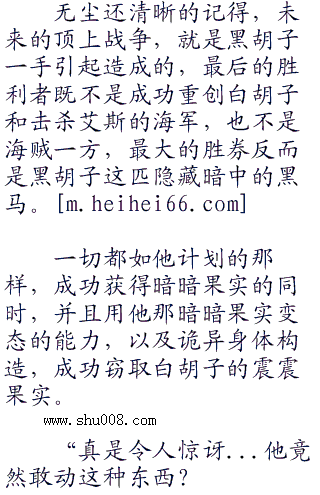 无尘还清晰的记得，未
来的顶上战争，就是黑胡子
一手引起造成的，最后的胜
利者既不是成功重创白胡子
和击杀艾斯的海军，也不是
海贼一方，最大的胜券反而
是黑胡子这匹隐藏暗中的黑
马。[m.heihei66.com]
一切都如他计划的那
样，成功获得暗暗果实的同
时，并且用他那暗暗果实变
态的能力，以及诡异身体构
造，成功窃取白胡子的震震
果实。
www.shu008.com
“真是令人惊讶...他竟
然敢动这种东西？